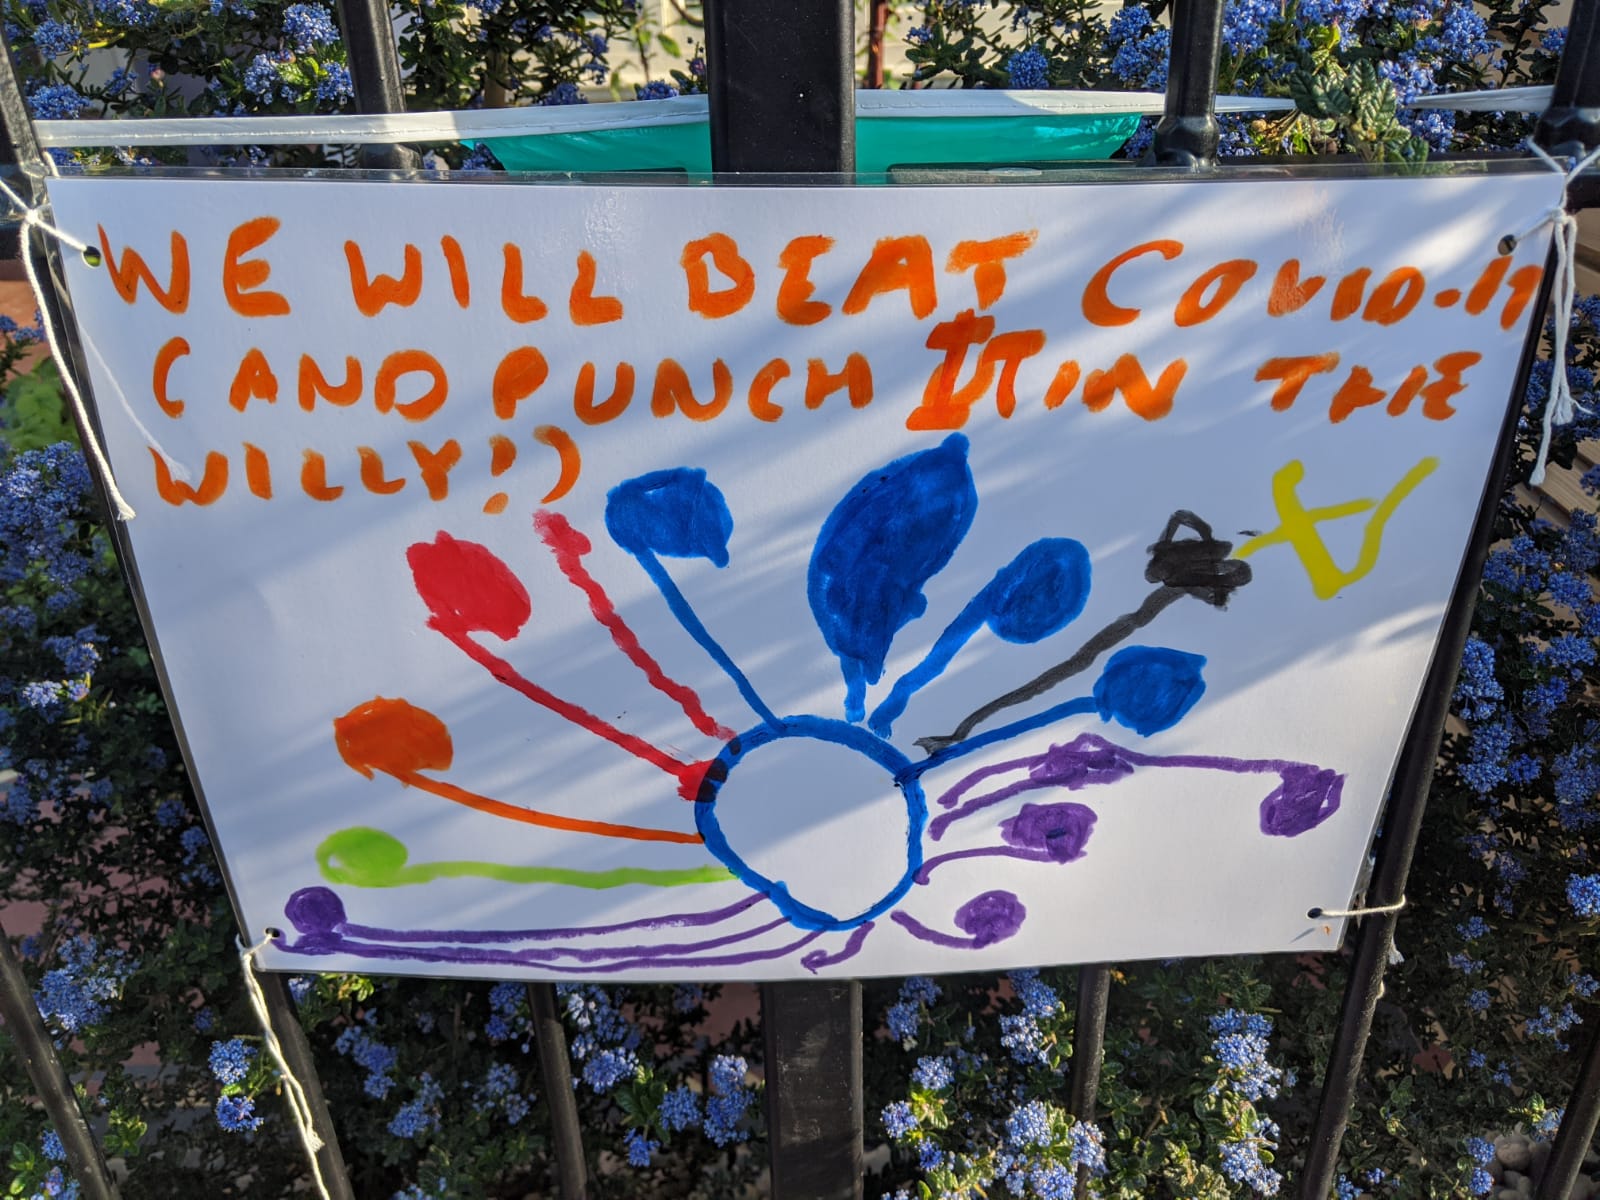 WE WILL BEAT COVID-19
(AND PUNCH IT IN THE
WILLY!)